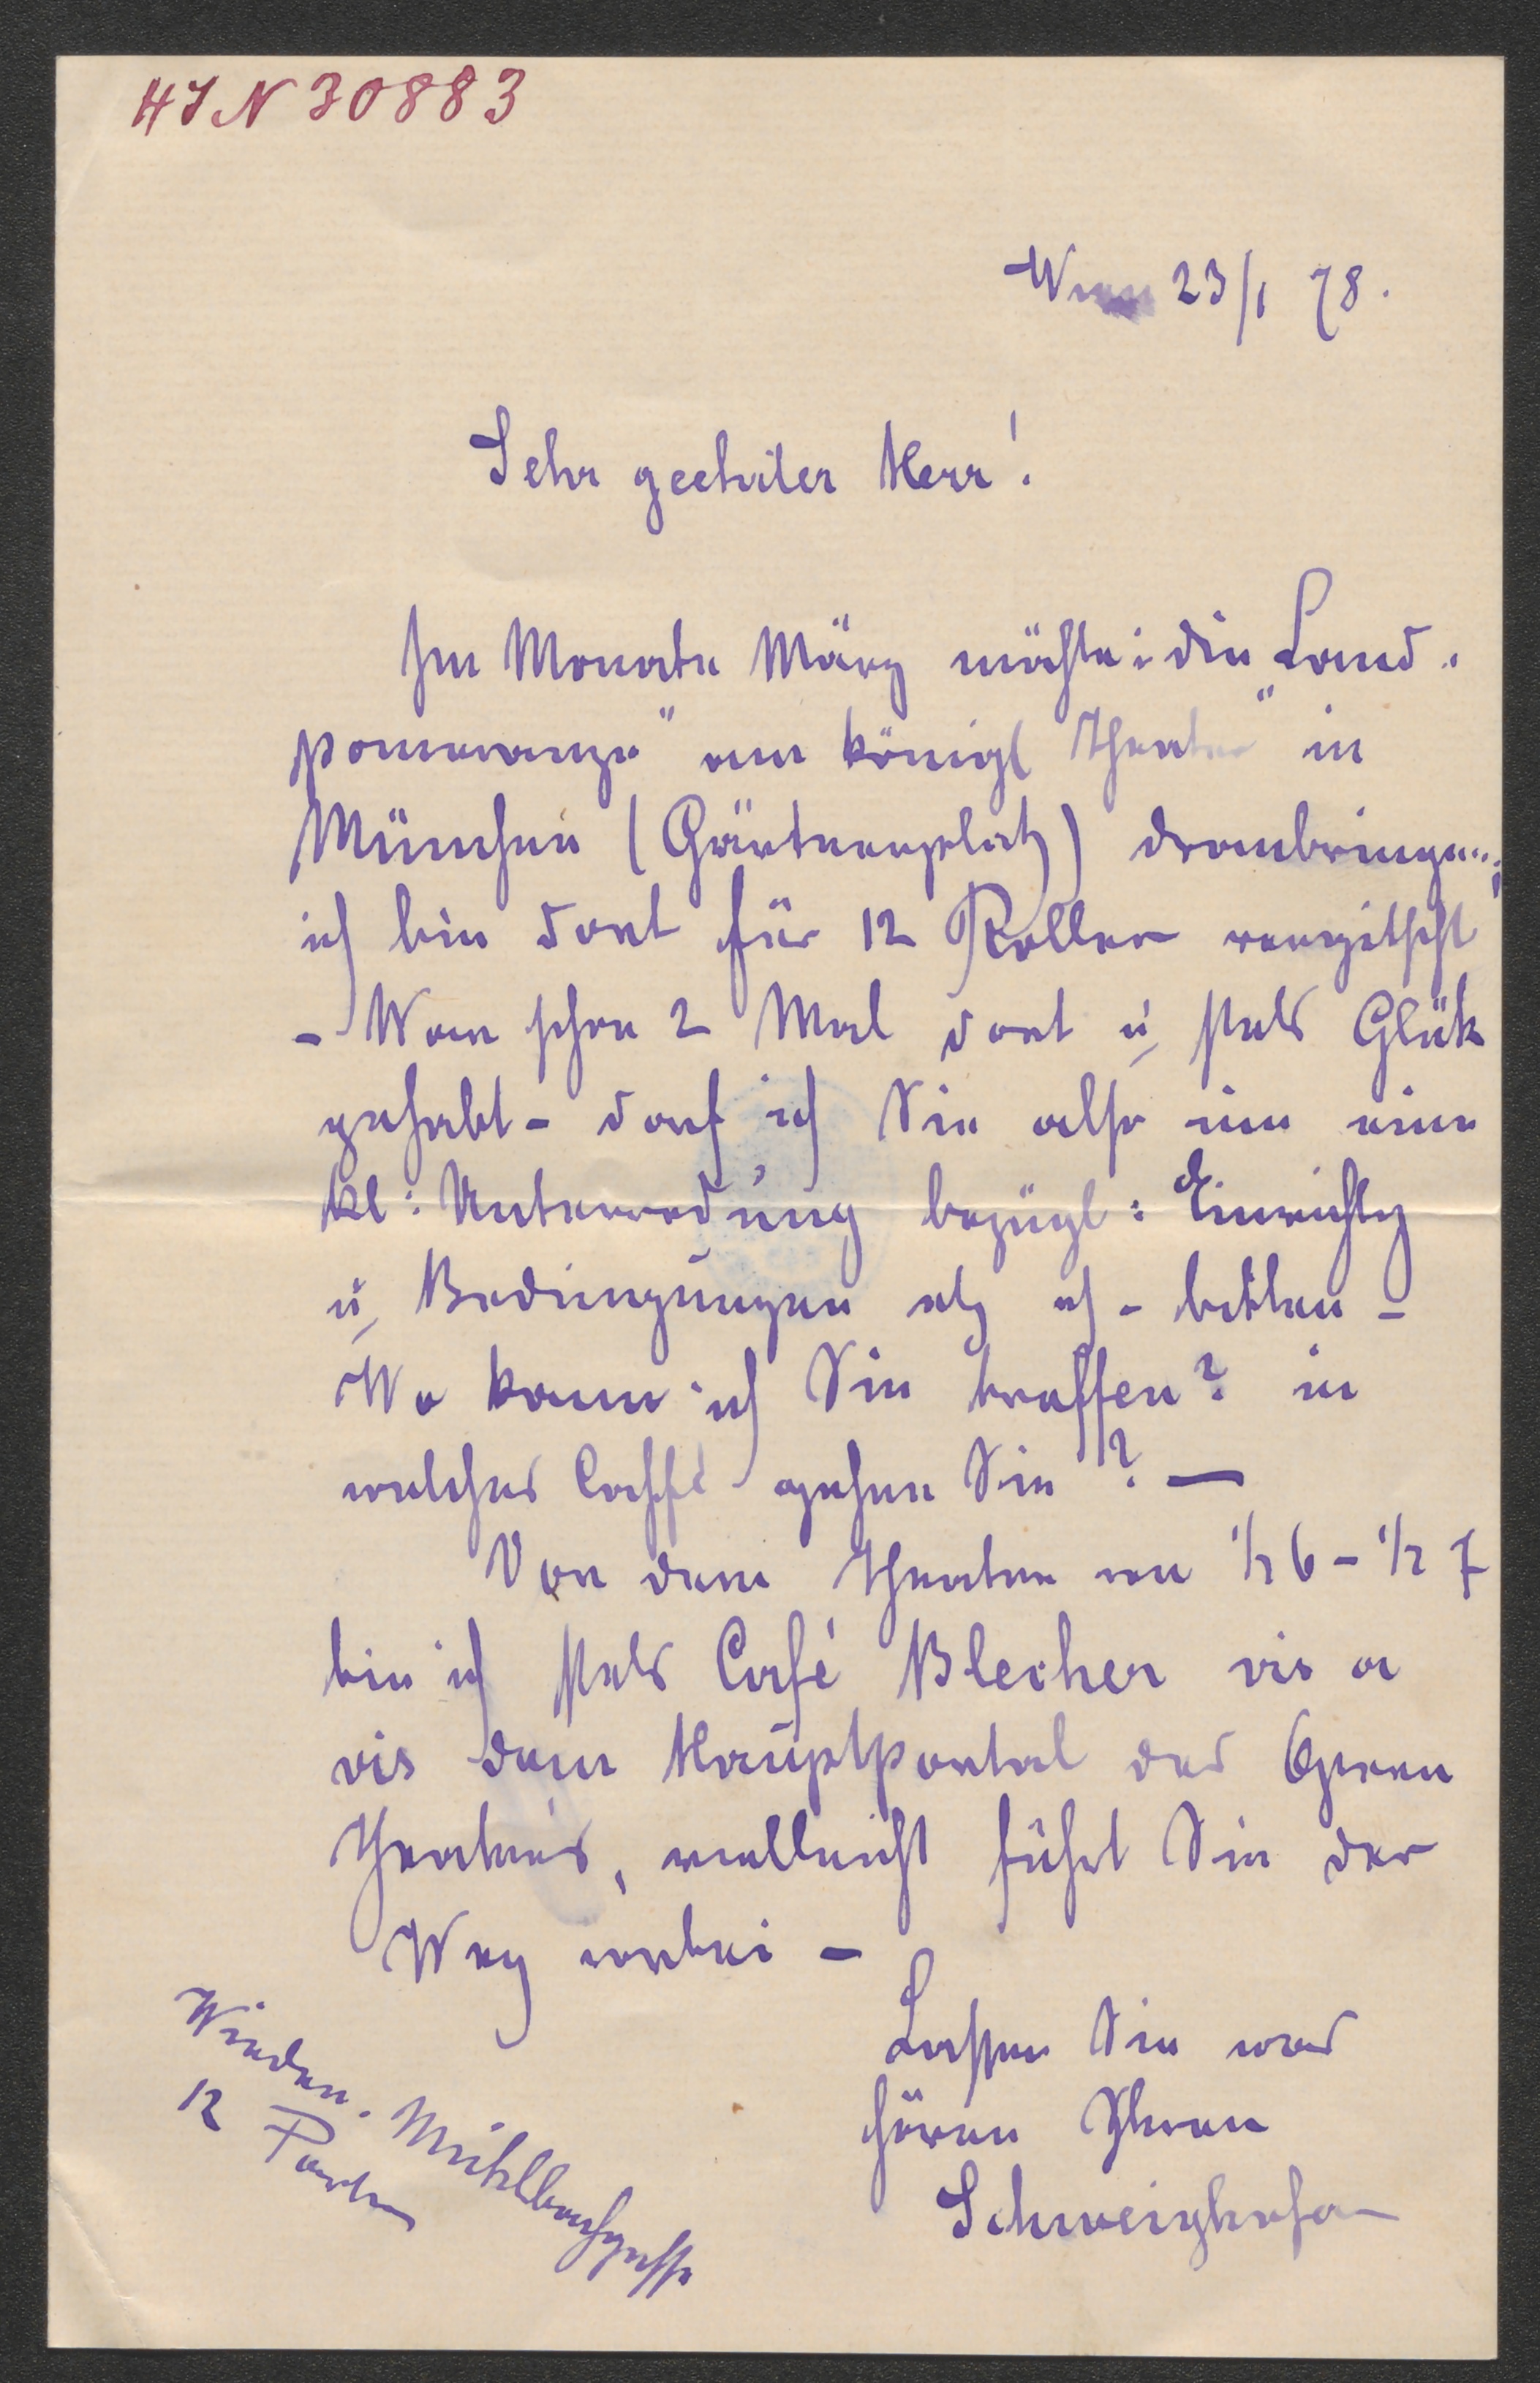 HIN 30883
Wien 23/1 78.
Sehr geehrter Herr!
Im Monate März möchte i: die Land-
pomeranze" am königl Theater" in
München (Gärtnerplatz) dranbringen;
ich bin dort für 12 Rollen
- War schon 2 Mal dort u, stets Glük
gehabt - darf ich Sie also um eine
kl: Unterredung bezügl: d Einrichtg
u, Bedingungen etz etz - bitten -
Wo kann ich Sie treffen? in
welches Caffé gehen Sie? -
Vor dem Theater von 1/2 6 - 1/2 7
bin ich stets Café Blecher vis a
vis dem Hauptportal des Opern
Theaters, vielleicht führt Sie der
Weg vorbei -
Lassen Sie was
hören Ihren
Schweighofer
Wieden. Mühlbachgasse
12 Parter